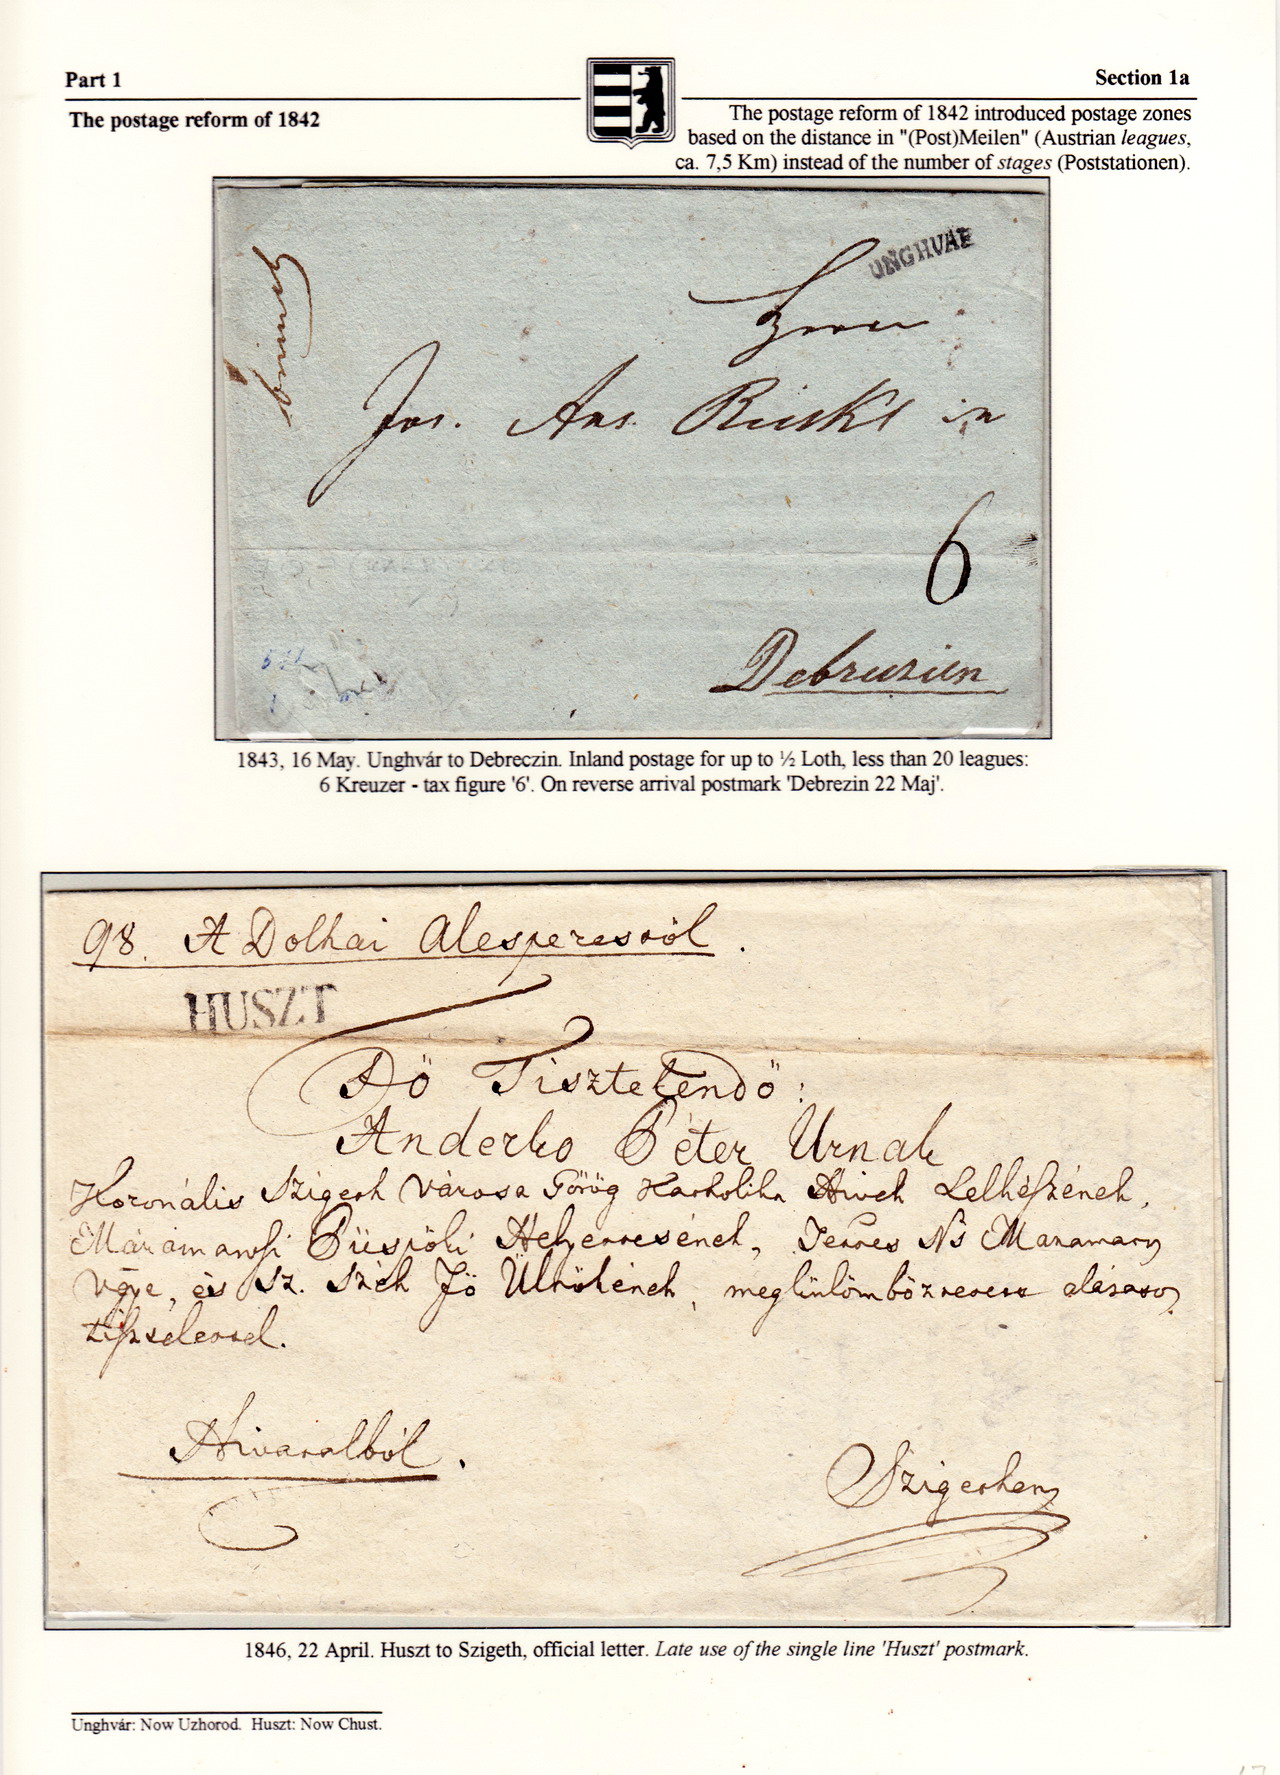 Part 1
Section 1a
The postage reform of 1842
The postage reform of 1842 introduced postage zones
based on the distance in "(Post)Meilen" (Austrian leagues,
ca. 7,5 Km) instead of the number of stages (Poststationen).
UNGHVÁR
Herrn
Jos. Ans. Rickl in
6
Debreczien
1843, 16 May. Unghvár to Debreczin. Inland postage for up to ½ Loth, less than 20 leagues:
6 Kreuzer - tax figure '6'. On reverse arrival postmark 'Debrezin 22 Maj'.
98. A Dolhai Alesperestöl.
HUSZT
Fö Tisztelendö:
Anderko Péter Urnak
Koronális Szigeth Városa Görög Katholika Hivek Lelkészének,
Máramarosi Püspöki Helyettesének, Ns Maramaros
Vgye, és Sz. Szék Fö Ülnökének, megkülömböztetett alázatos
tisztelettel.
Hivatalból.
Szigethen
1846, 22 April. Huszt to Szigeth, official letter. Late use of the single line 'Huszt' postmark.
Unghvár: Now Uzhorod. Huszt: Now Chust.